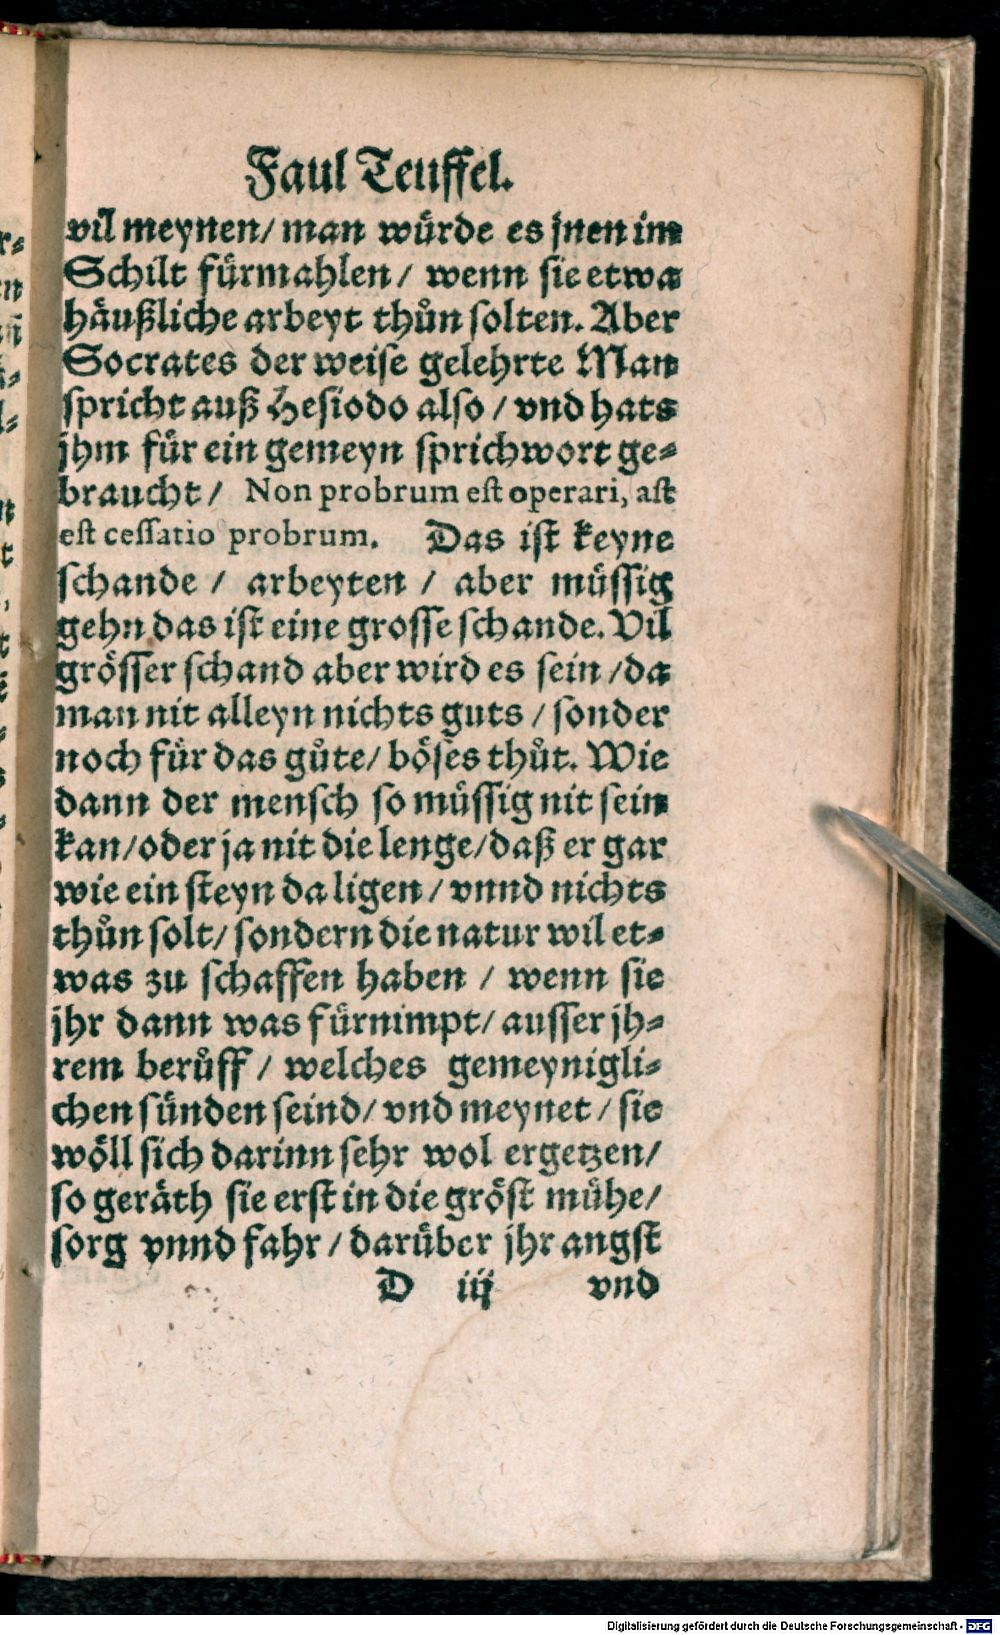 Faul Teuffel.
vil meynen/ man wuͤrde es jnen im
Schilt fuͤrmahlen/ wenn sie etwa
haͤußliche arbeyt thuͦn solten. Aber
Socrates der weise gelehrte Man
spricht auß Hesiodo also/ vnd hats
jhm fuͤr ein gemeyn sprichwort ge⸗
braucht/ Non probrum est operari, ast
est cessatio probrum. Das ist keyne
schande/ arbeyten/ aber muͤssig
gehn das ist eine grosse schande. Vil
groͤsser schand aber wird es sein/ da
man nit alleyn nichts guts/ sonder
noch fuͤr das guͦte/ boͤses thuͦt. Wie
dann der mensch so muͤssig nit sein
kan/ oder ja nit die lenge/ daß er gar
wie ein steyn da ligen/ vnnd nichts
thuͦn solt/ sondern die natur wil et⸗
was zu schaffen haben/ wenn sie
jhr dann was fuͤrnimpt/ ausser jh⸗
rem beruͦff/ welches gemeynigli⸗
chen suͤnden seind/ vnd meynet/ sie
woͤll sich darinn sehr wol ergetzen/
so geraͤth sie erst in die groͤst muͤhe/
sorg vnnd fahr/ daruͤber jhr angst
D iij vnd
Digitalisierung gefördert durch die Deutsche Forschungsgemeinschaft - DFG